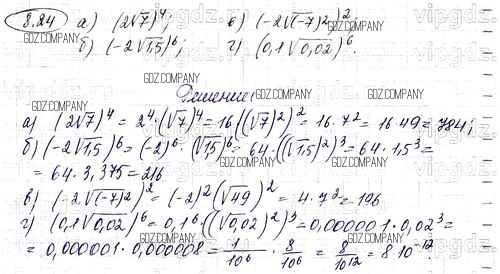 8.24 а) (2√7)⁴; в) (-2√(-7)²)²
б) (-2√1,5)⁶; г) (0,1√0,02)⁶.
Решение
а) (2√7)⁴ = 2⁴·(√7)⁴ = 16((√7)²)² = 16·7² = 16·49 = 784;
б) (-2√1,5)⁶ = (-2)⁶·(√1,5)⁶ = 64·((√1,5)²)³ = 64·1,5³ =
= 64·3,375 = 216
в) (-2√(-7)²)² = (-2)²(√49)² = 4·7² = 196
г) (0,1√0,02)⁶ = 0,1⁶·((√0,02)²)³ = 0,000001·0,02³ =
= 0,000001·0,000008 = 1/10⁶ · 8/10⁶ = 8/10¹² = 8·10⁻¹².
GDZ.COMPANY